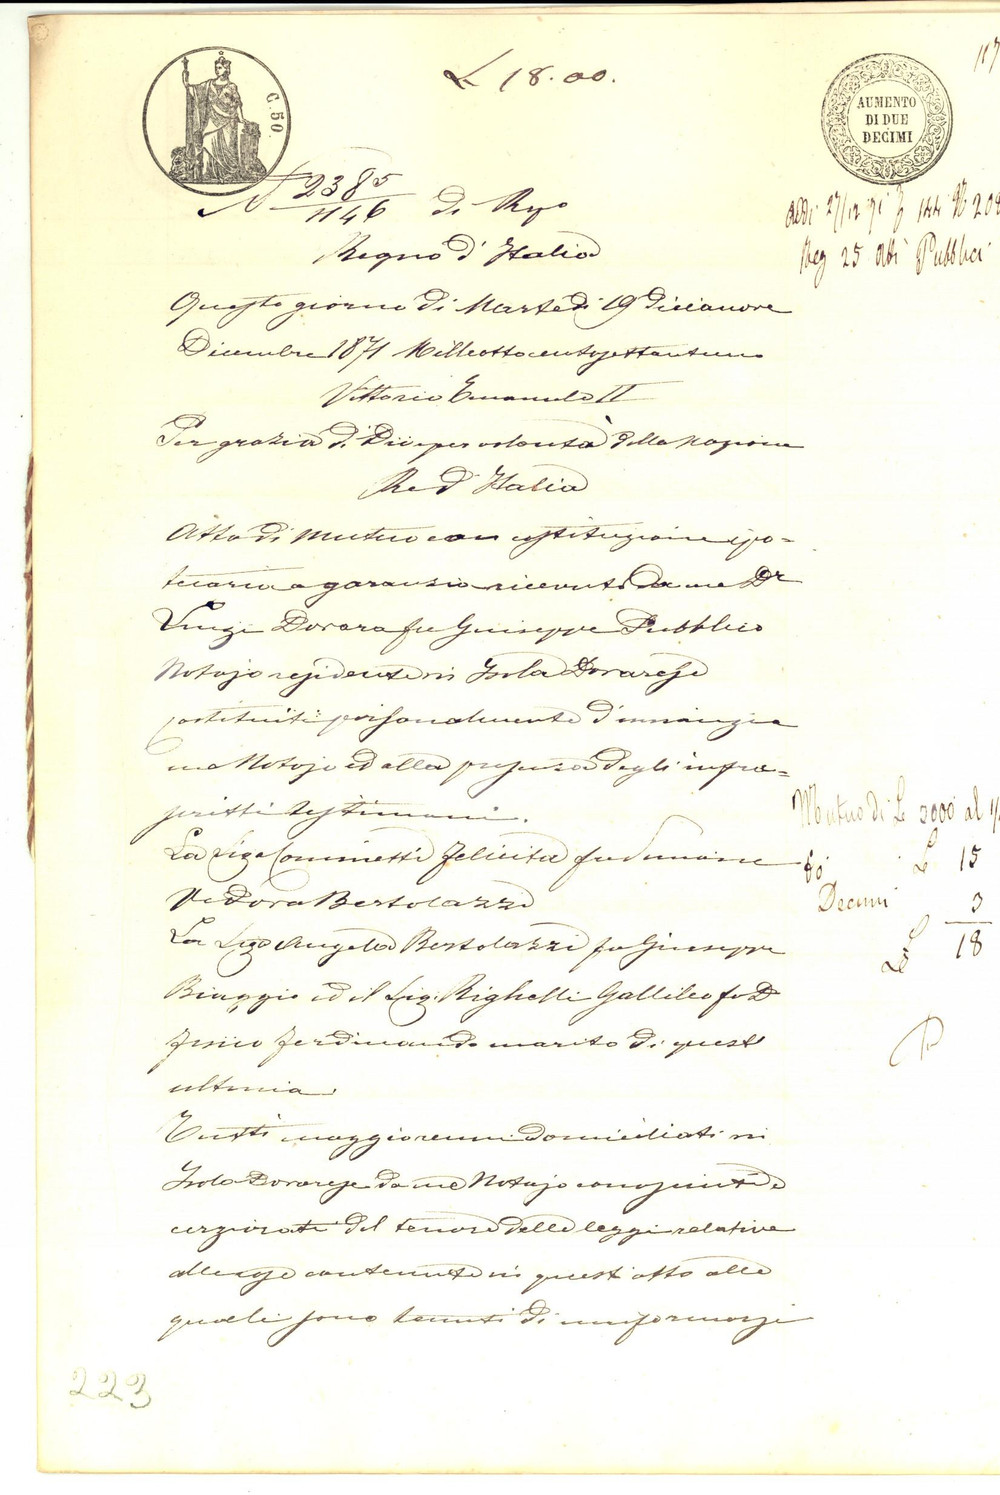 L 18.00.
C. 50.
AUMENTO
DI DUE
DECIMI
N 2385/1146 di Rep
Addi 27/12 71 144 N 208
Reg 25 Atti Pubblici
Regno d'Italia
Questo giorno di Martedì 19 diecianove
Dicembre 1871 Milleottocentosettantuno
Vittorio Emanuele II
Per grazia di Dio e per volontà della Nazione
Re d'Italia
Atto di mutuo con costituzione ipo=
tecaria a garanzia ricevuti da me Dr
Luigi Dovara fu Giuseppe Pubblico
Notajo residente in Isola Dovarese
costituiti personalmente d'innanzi a
me Notajo ed alla presenza degli infra=
scritti testimoni.
La Siga Cominetti Felicita fu Simone
Vedova Bertolazzi
La Siga Angela Bertolazzi fu Giuseppe
Biaggio ed il Sig. Righelli Gallileo fu D
Fisico Ferdinando marito di quest'
ultima.
Tutti maggiorenni domiciliati in
Isola Dovarese da me Notajo conosciuti e
cerziorati del tenore delle leggi relative
alle cose contenute in quest'atto alle
quali sono tenuti di uniformarsi
Mutuo di L 3000 al
L 15
Decimi 3
L. 18
223